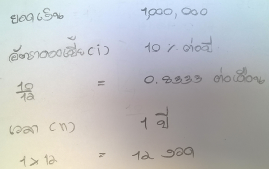 ยอดเงิน 1,000,000
อัตราดอกเบี้ย (i) 10 % ต่อปี
10/12 = 0.8333 ต่อเดือน
เวลา (n) 1 ปี
1 x 12 = 12 งวด